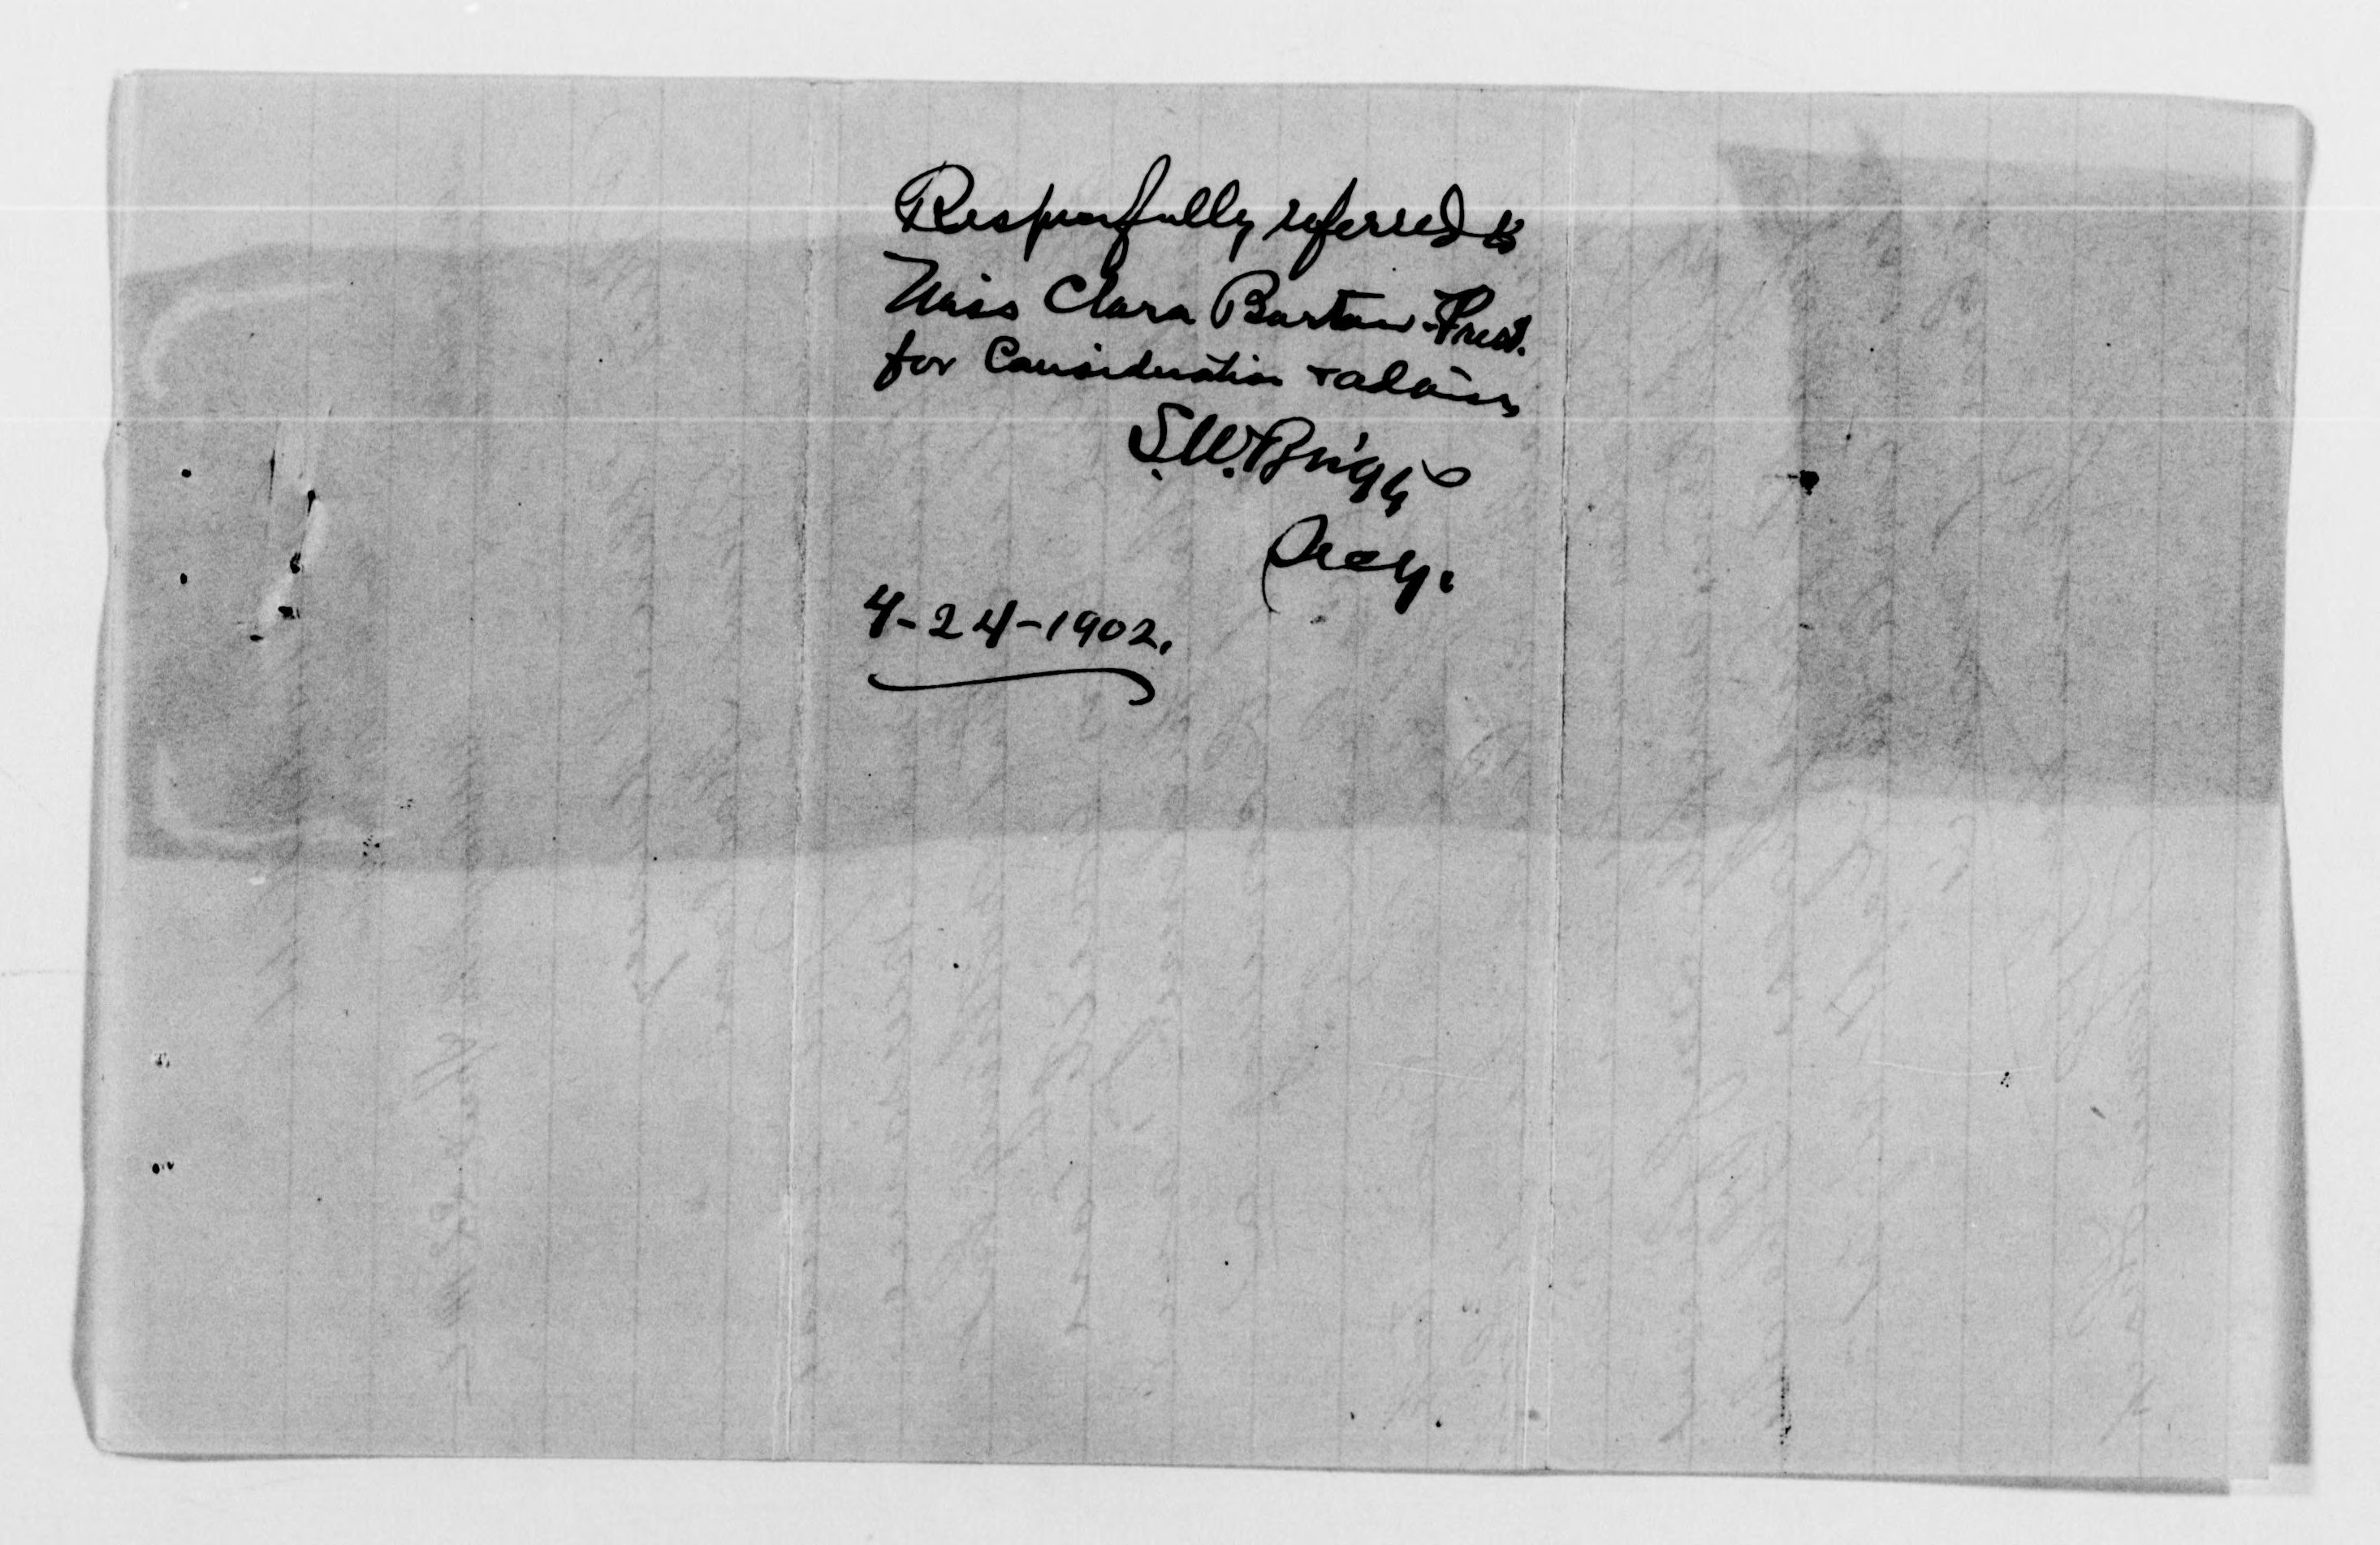 Respectfully referred to
Miss Clara Barton Prest.
for Consideration + advice
S.W. Briggs
Secy.
4-24-1902.